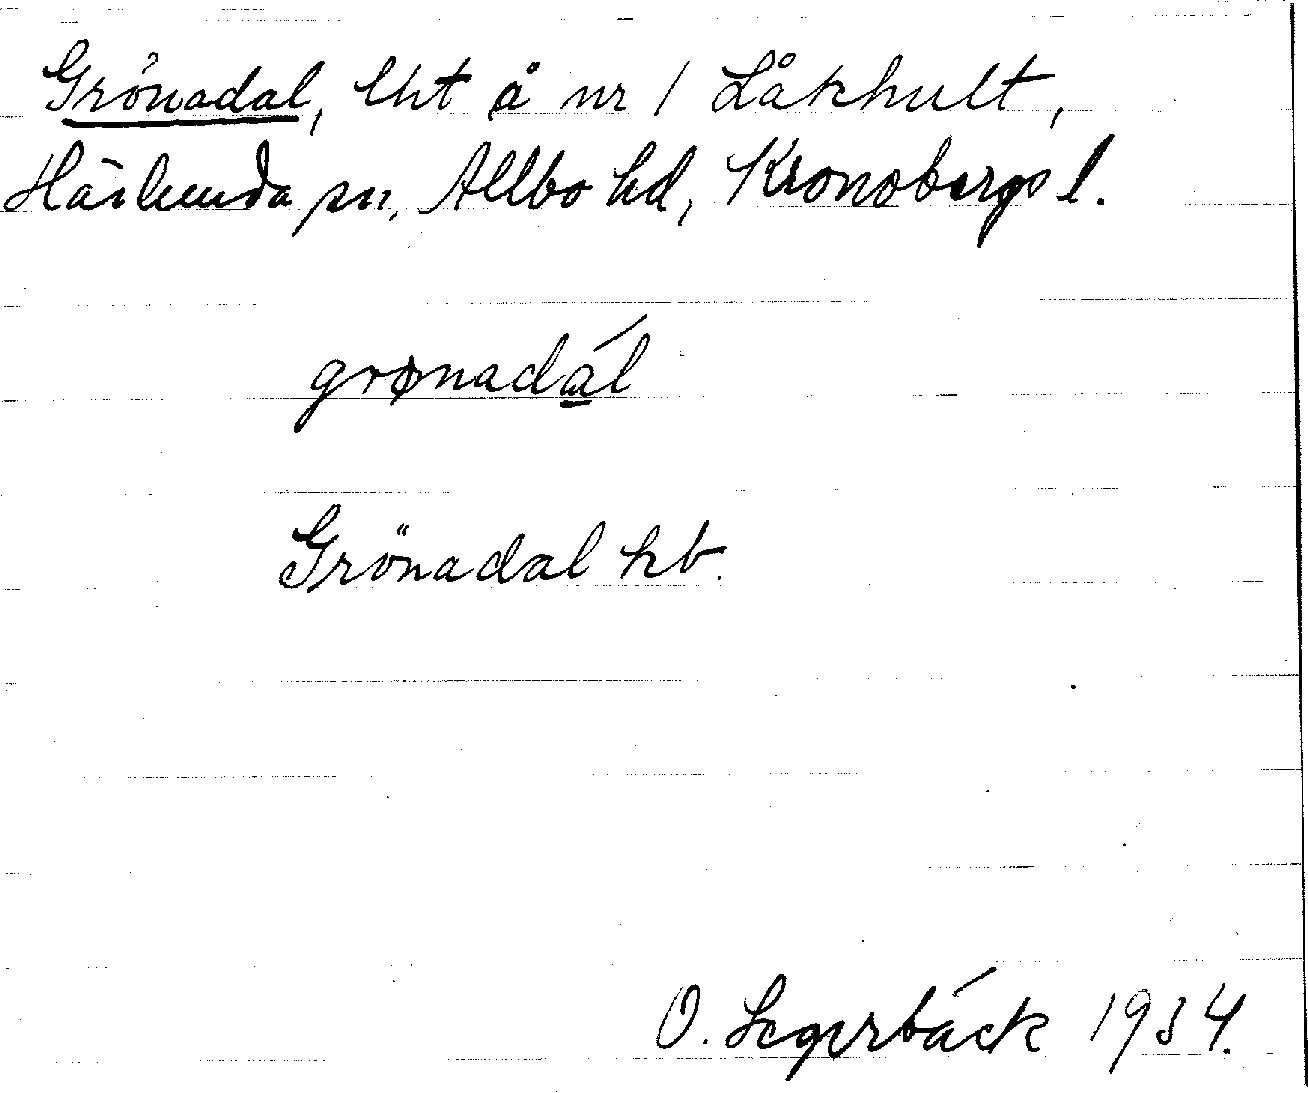 Grönadal, lht å nr 1 Låkhult,
Härlunda sn, Allbo hd, Kronobergs l.
grønadál
Grönadal kb.
O. Segerbäck 1934.